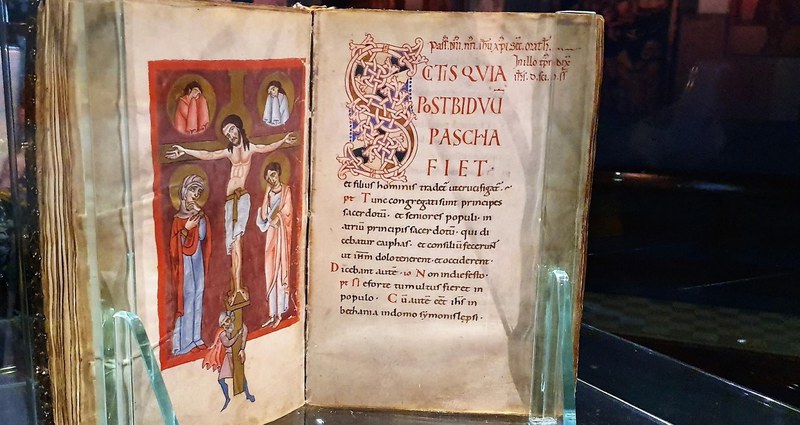 CTIS QVIA
POST BIDVU
PASCHA
FIET
et filius hominis tradet᷑ ut crucifigat᷑.
pt Tunc congregati sunt principes
sacerdotū. et seniores populi. in
atriū principis sacerdotū. qui di
cebatur caiphas. et consiliū fecerunt
ut ihm̄ dolo tenerent. et occiderent.
Dicebant autē. Non in die festo.
pt Ne forte tumultus fieret in
populo. Cū autē eēt ihs in
bethania in domo symonis lep̄si.